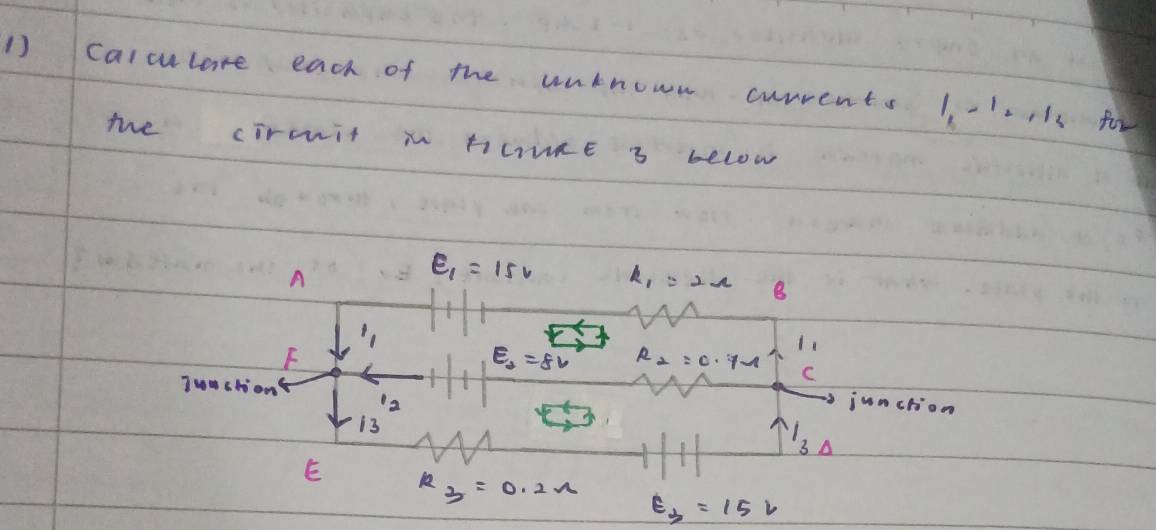 1) Calculate each of the unknown currents I₁, I₂, I₃ for
the circuit in FIGURE 3 below
E₁ = 15V R₁ = 2Ω
A B
I₁ I₁
F E₂ = 8V C
junction junction
I₂
I₃ I₃ D
E
R₃ = 0.2Ω E₃ = 15V